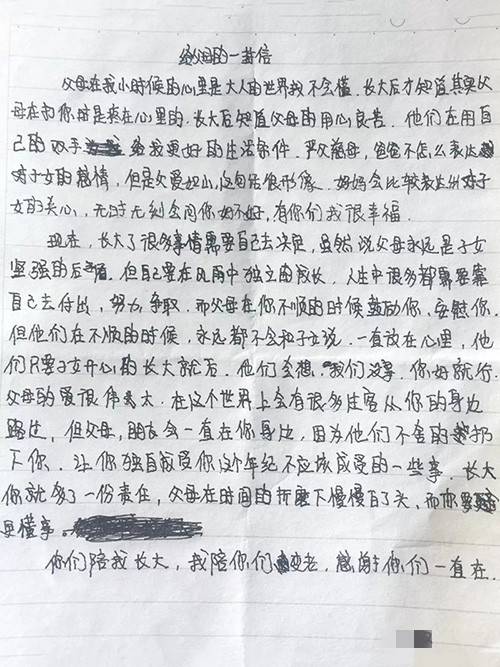 给父母的一封信
父母在我小时候的心里是大人的世界我不会懂．长大后才知道其实父
母在 你时是疼在心里的．长大后知道父母的用心良苦．他们在用自
己的双手 给我更好的生活条件．严父慈母，爸爸不怎么表达
对子女的感情，但是父爱如山，这句话很形象．妈妈会比较表达出对子
女的关心，无时无刻会问你好不好，有你们我很幸福．
现在，长大了很多事情需要自己去决定，虽然说父母永远是子女
坚强的后盾．但自己要在风雨中独立的成长．人生中很多都需要靠
自己去付出，努力，争取．而父母在你不顺的时候鼓励你，安慰你．
但他们在不顺的时候，永远都不会和子女说．一直放在心里，他
们只要子女开心的长大就后．他们会想．我们没事．你好就行．
父母的爱很伟大．在这个世界上会有很多过客从你的身边
路过，但父母，朋友会一直在你身边，因为他们不舍的 扔
下你．让你独自承受你这个年纪不应该成受的一些事．长大
你就多了一份责任，父母在时间的折磨下慢慢白了头，而你要
更懂事。
你们陪我长大，我陪你们变老，感谢你们一直在．